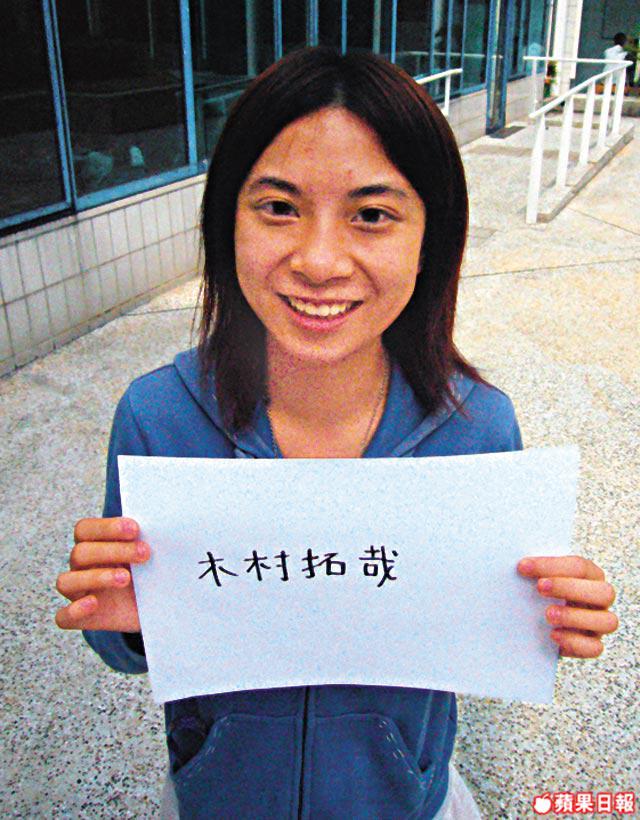 木村拓哉
蘋果日報